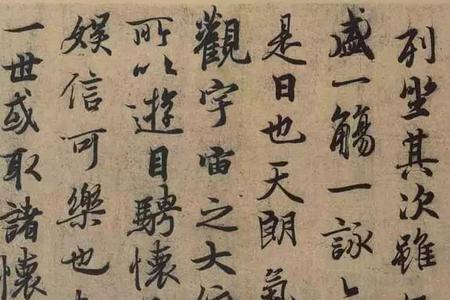 列坐其次雖
盛一觴一詠
是日也天朗氣
觀宇宙之大
所以遊目騁懷
娛信可樂也
一世或取諸懷